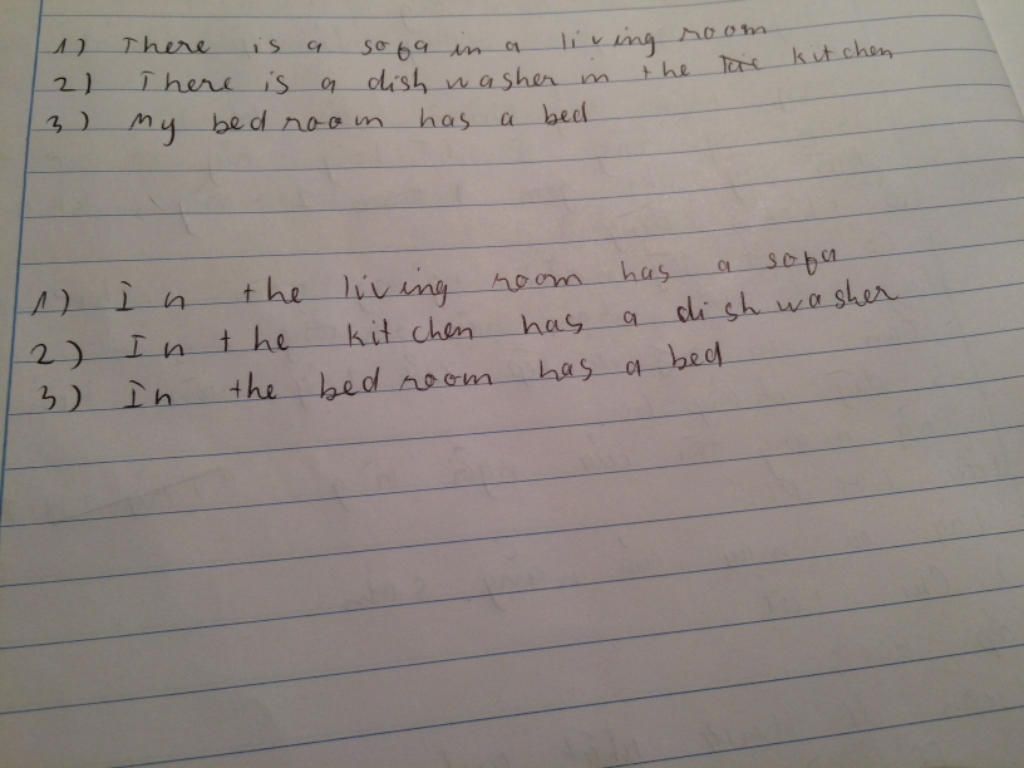 1) There is a sofa in a living room
2) There is a dish washer in the kitchen
3) My bed room has a bed
1) In the living room has a sofa
2) In the kitchen has a dish washer
3) In the bed room has a bed